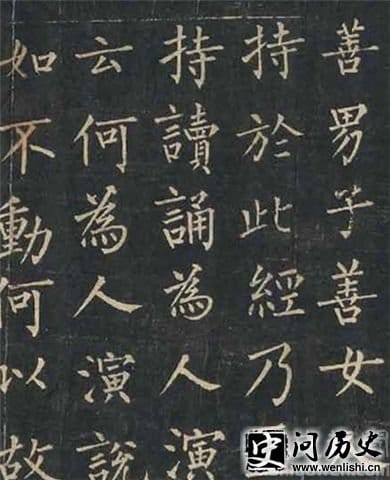 善男子善女
持於此經乃
持讀誦為人演
云何為人演說
如不動何以故
问历史
www.wenlishi.cn